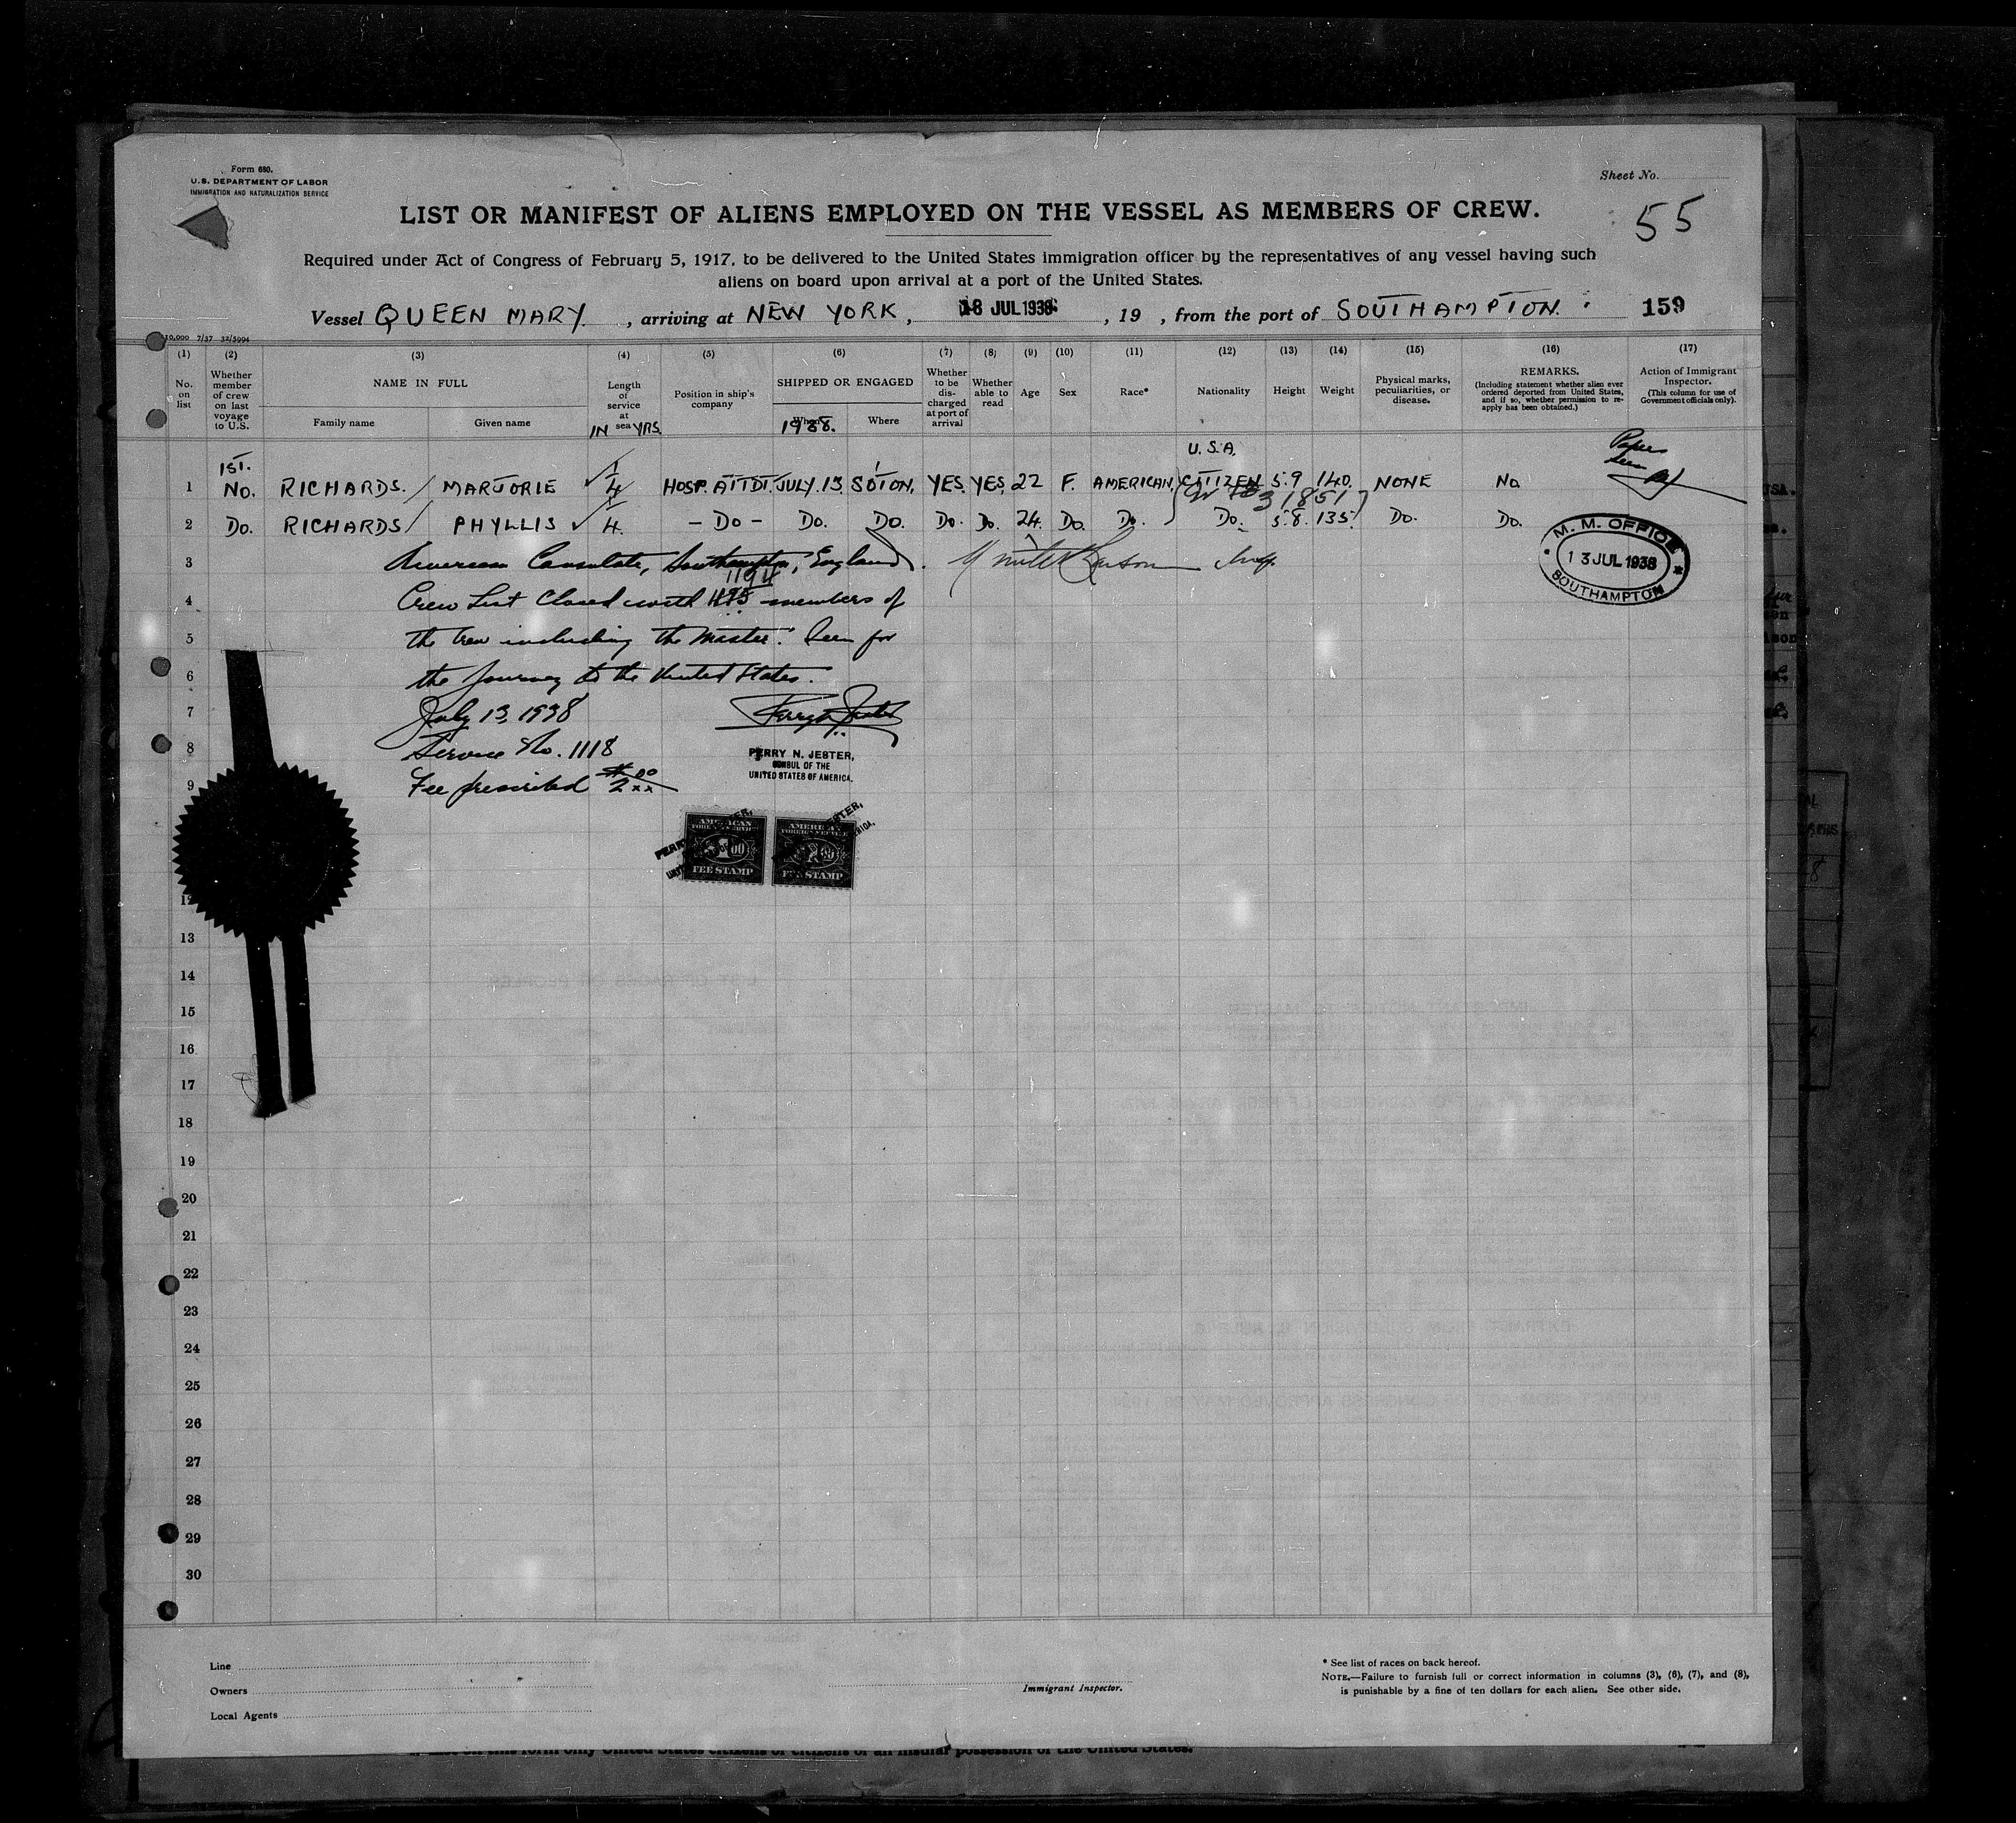 Form 680.
U.S. DEPARTMENT OF LABOR
IMMIGRATION AND NATURALIZATION SERVICE
Sheet No.
LIST OR MANIFEST OF ALIENS EMPLOYED ON THE VESSEL AS MEMBERS OF CREW.
55
Required under Act of Congress of February 5, 1917, to be delivered to the United States immigration officer by the representatives of any vessel having such
aliens on board upon arrival at a port of the United States.
Vessel QUEEN MARY, arriving at NEW YORK, 18 JUL 1938, 19 , from the port of SOUTHAMPTON. 159
10,000 7/37 32/5994
(1) (2) (3) (4) (5) (6) (7) (8) (9) (10) (11) (12) (13) (14) (15) (16) (17)
No. on list
Whether member of crew on last voyage to U.S.
NAME IN FULL
Family name
Given name
Length of service at sea
IN YRS.
Position in ship's company
SHIPPED OR ENGAGED
1938.
Where
Whether to be discharged at port of arrival
Whether able to read
Age
Sex
Race*
Nationality
Height
Weight
Physical marks, peculiarities, or disease.
REMARKS.
(Including statement whether alien ever ordered deported from United States, and if so, whether permission to reapply has been obtained.)
Action of Immigrant Inspector.
(This column for use of Government officials only).
1 1ST. NO. RICHARDS. / MARJORIE ✓ 1/4 HOSP. ATTDT. JULY.13. SOTON. YES. YES. 22 F. AMERICAN. U.S.A. CITIZEN 5.9 140. NONE NO. Papers Seen
2 DO. RICHARDS / PHYLLIS ✓ 1/4. - DO - DO. DO. DO. DO. 24. DO. DO. DO. 5.8. 135. DO. DO.
M. M. OFFICE
13 JUL 1938
SOUTHAMPTON
3 American Consulate, Southampton, England.
1194
4 Crew List Closed with 1195 members of
5 the crew including the Master. Seen for
6 the journey to the United States.
7 July 13, 1938
8 Service No. 1118
PERRY N. JESTER,
CONSUL OF THE
UNITED STATES OF AMERICA.
9 Fee prescribed $2.00
AMERICAN FOREIGN SERVICE
FEE STAMP
AMERICAN FOREIGN SERVICE
FEE STAMP
12
13
14
15
16
17
18
19
20
21
22
23
24
25
26
27
28
29
30
Line
Owners
Local Agents
Immigrant Inspector.
* See list of races on back hereof.
NOTE.—Failure to furnish full or correct information in columns (3), (6), (7), and (8),
is punishable by a fine of ten dollars for each alien. See other side.
on this form only United States citizens or citizens of an insular possession of the United States.